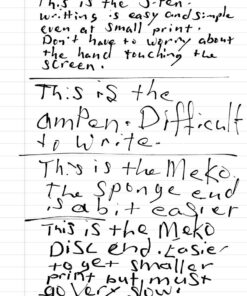 This is the S-Pen.
writting is easy and simple
even at small print.
Don't have to worry about
the hand touching the
screen.
This is the
amPen. Difficult
to write.
This is the Meko
The sponge end
is a bit easier
This is the Meko
Disc end. Easier
to get smaller
print but must
go very slow!